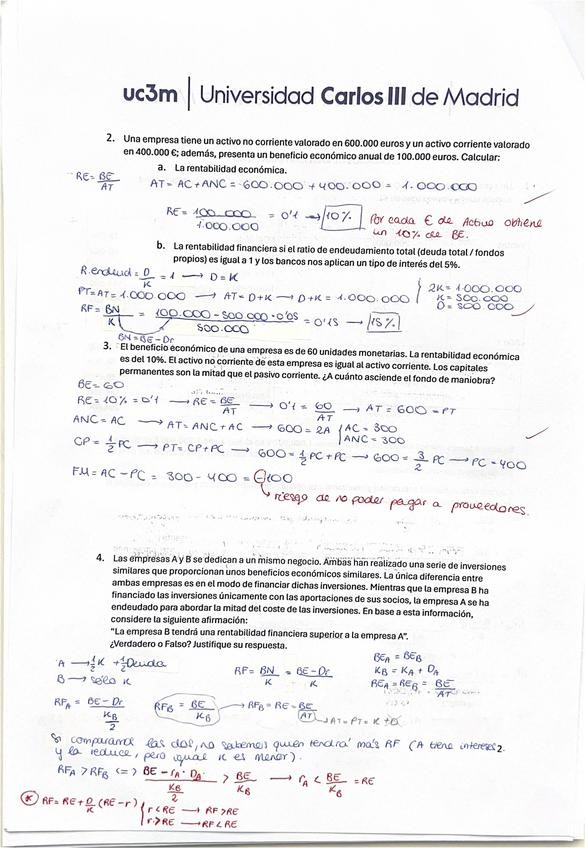 uc3m | Universidad Carlos III de Madrid
2. Una empresa tiene un activo no corriente valorado en 600.000 euros y un activo corriente valorado
en 400.000 €; además, presenta un beneficio económico anual de 100.000 euros. Calcular:
a. La rentabilidad económica.
RE = BE/AT
AT = AC + ANC = 600.000 + 400.000 = 1.000.000
RE = 100.000/1.000.000 = 0'1 → 10%
Por cada € de Activo obtiene
un 10% de BE.
b. La rentabilidad financiera si el ratio de endeudamiento total (deuda total / fondos
propios) es igual a 1 y los bancos nos aplican un tipo de interés del 5%.
R.endeud = D/K = 1 → D = K
PT = AT = 1.000.000 → AT = D+K → D+K = 1.000.000
2K = 1.000.000
K = 500.000
D = 500.000
RF = BN/K = 100.000 - 500.000 · 0'05/500.000 = 0'15 → 15%
BN = BE - Dr
3. El beneficio económico de una empresa es de 60 unidades monetarias. La rentabilidad económica
es del 10%. El activo no corriente de esta empresa es igual al activo corriente. Los capitales
permanentes son la mitad que el pasivo corriente. ¿A cuánto asciende el fondo de maniobra?
BE = 60
RE = 10% = 0'1 → RE = BE/AT → 0'1 = 60/AT → AT = 600 = PT
ANC = AC → AT = ANC + AC → 600 = 2A { AC = 300
ANC = 300
CP = 1/2 PC → PT = CP + PC → 600 = 1/2 PC + PC → 600 = 3/2 PC → PC = 400
FM = AC - PC = 300 - 400 = -100
↳ riesgo de no poder pagar a proveedores.
4. Las empresas A y B se dedican a un mismo negocio. Ambas han realizado una serie de inversiones
similares que proporcionan unos beneficios económicos similares. La única diferencia entre
ambas empresas es en el modo de financiar dichas inversiones. Mientras que la empresa B ha
financiado las inversiones únicamente con las aportaciones de sus socios, la empresa A se ha
endeudado para abordar la mitad del coste de las inversiones. En base a esta información,
considere la siguiente afirmación:
"La empresa B tendrá una rentabilidad financiera superior a la empresa A".
¿Verdadero o Falso? Justifique su respuesta.
A → 1/2 K + 1/2 Deuda
B → sólo K
RF = BN/K = BE - Dr/K
BEA = BEB
KB = KA + DA
REA = REB = BE/AT
RFA = BE - Dr/KB/2
RFB = BE/KB → RFB = RE = BE/AT
→ AT = PT = K + D
Si comparamos las dos, no sabemos quien tendrá más RF (A tiene intereses
y la reduce, pero igual K es menor).
RFA > RFB <=> BE - rA · DA/KB/2 > BE/KB → rA < BE/KB = RE
* RF = RE + D/K (RE - r) { r < RE → RF > RE
r > RE → RF < RE